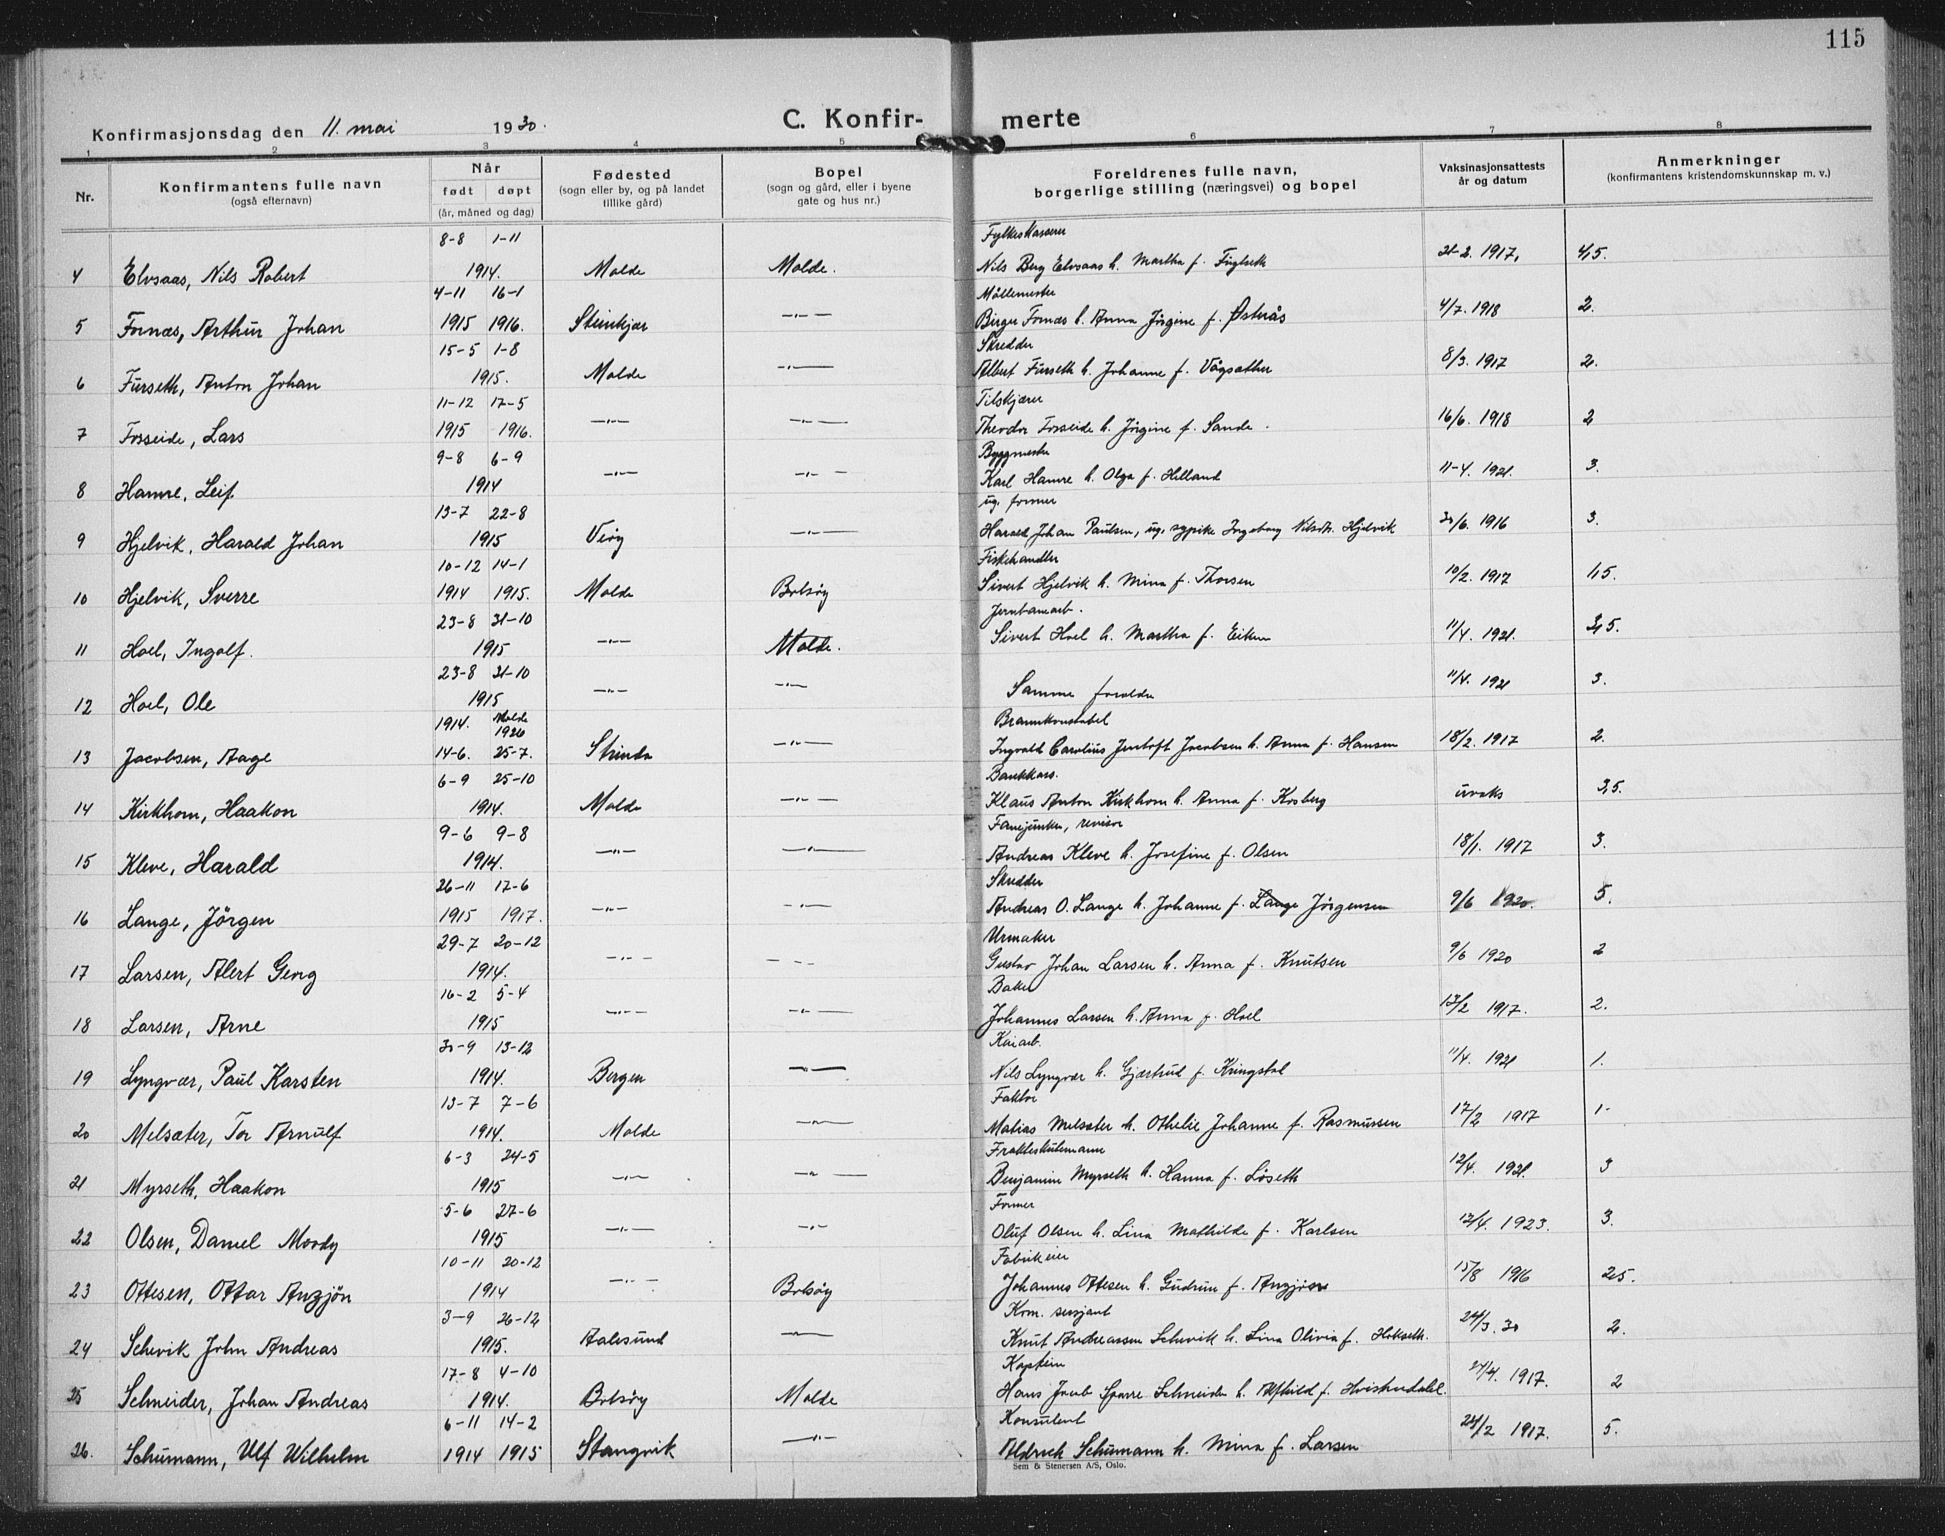 115
C. Konfirmerte
Konfirmasjonsdag den 11. mai 1930.
1 2 3 4 5 6 7 8
Nr.
Konfirmantens fulle navn
(også efternavn)
Når
født døpt
(år, måned og dag)
Fødested
(sogn eller by, og på landet
tillike gård)
Bopel
(sogn og gård, eller i byene
gate og hus nr.)
Foreldrenes fulle navn,
borgerlige stilling (næringsvei) og bopel
Vaksinasjonsattests
år og datum
Anmerkninger
(konfirmantens kristendomskunnskap m. v.)
8-8 1-11 Fylkeskasserer
4 Elvsaas, Nils Robert 1914. Molde Molde. Nils Berg Elvsaas h. Martha f. Fuglseth 21-2. 1917,
4-11 16-1 Møllemester
5 Fornæs, Arthur Johan 1915 1916. Steinkjær —"— Birger Fornæs h. Anna Jørgine f. Østnås 4/7. 1918 2.
15-5 1-8 Skredder
6 Furseth, Anton Johan 1915. Molde —"— Albert Furseth h. Johanne f. Vågsæther 8/3. 1917 2.
11-12 17-5 Tilskjærer
7 Fosseide, Lars 1915 1916. —"— —"— Theodor Fosseide h. Jørgine f. Sande. 16/6. 1918 2
9-8 6-9 Byggmester
8 Hamre, Leif 1914 —"— —"— Karl Hamre h. Olga f. Helland 11-4. 1921. 3.
13-7 22-8 ug. former
9 Hjelvik, Harald Johan 1915 Veøy —"— Harald Johan Paulsen, ug. sypike Ingeborg Nilsdtr. Hjelvik 30/6. 1916 3.
10-12 14-1 Fiskehandler
10 Hjelvik, Sverre 1914 1915. Molde Bolsøy Sivert Hjelvik h. Mina f. Thorsen 10/2. 1917 1,5.
23-8 31-10 Jernbanearb.
11 Hoel, Ingolf. 1915 —"— Molde. Sivert Hoel h. Martha f. Eiken 11/4. 1921. 3,5.
23-8 31-10
12 Hoel, Ole 1915 —"— —"— Samme foreldre 11/4. 1921 3.
1914. Molde 1926 Brannkonstabel
13 Jacobsen, Aage 14-6. 25-7. Strinda —"— Ingvald Carolius Jentoft Jacobsen h. Anna f. Hansen 18/2. 1917 2.
6-9 25-10 Bankkass.
14 Kirkhorn, Haakon 1914. Molde —"— Klaus Anton Kirkhorn h. Anna f. Kosberg uvaks 3,5.
9-6 9-8 Fanejunker, revisor
15 Kleve, Harald 1914. —"— —"— Andreas Kleve h. Josefine f. Olsen 18/1. 1917 3.
26-11 17-6 Skredder
16 Lange, Jörgen 1915 1917. —"— —"— Andreas O. Lange h. Johanne f. Lange Jörgensen 9/6 1920. 5.
29-7 20-12 Urmaker
17 Larsen, Alert Georg 1914. —"— —"— Gustav Johan Larsen h. Anna f. Knutsen 9/6 1920 2
16-2 5-4 Baker
18 Larsen, Arne 1915 —"— —"— Johannes Larsen h. Anna f. Hoel 13/2 1917. 2.
30-9 13-12 Kaiarb.
19 Lyngvær, Paul Karsten 1914. Bergen —"— Nils Lyngvær h. Gjertrud f. Kringstad 11/4. 1921 1.
13-7 7-6 Faktor
20 Melsæter, Tor Arnulf 1914. Molde —"— Matias Melsæter h. Othelie Johanne f. Rasmussen 17/2 1917 1-
6-3 24-5 Frakteskutemann
21 Myrseth, Haakon 1915 —"— —"— Benjamin Myrseth h. Hanna f. Löseth 12/4. 1921. 3
5-6 27-6 Former
22 Olsen, Daniel Moody 1915 —"— —"— Oluf Olsen h. Lina Mathilde f. Karlsen 12/4. 1923. 3.
10-11 20-12 Fabrikeier
23 Ottesen, Ottar Angjön 1914 —"— Bolsøy Johannes Ottesen h. Gudrun f. Angjön 15/8 1916 2,5.
3-9 26-12 Kom. sersjant
24 Schevik John Andreas 1915. Aalesund —"— Knut Andreassen Schevik h. Lina Olivia f. Hokseth. 24/3. 30 2.
17-8 4-10 Kaptein
25 Schneider, Johan Andreas 1914. Bolsøy Molde Hans Jacob Sparre Schneider h. Alfhild f. 27/4. 1917. 2
6-11 14-2 Konsulent
26. Schumann, Ulf Wilhelm 1914 1915 Stangvik —"— Aldrich Schumann h. Mina f. Larsen 24/2 1917. 5.
Sem & Stenersen A/S, Oslo.